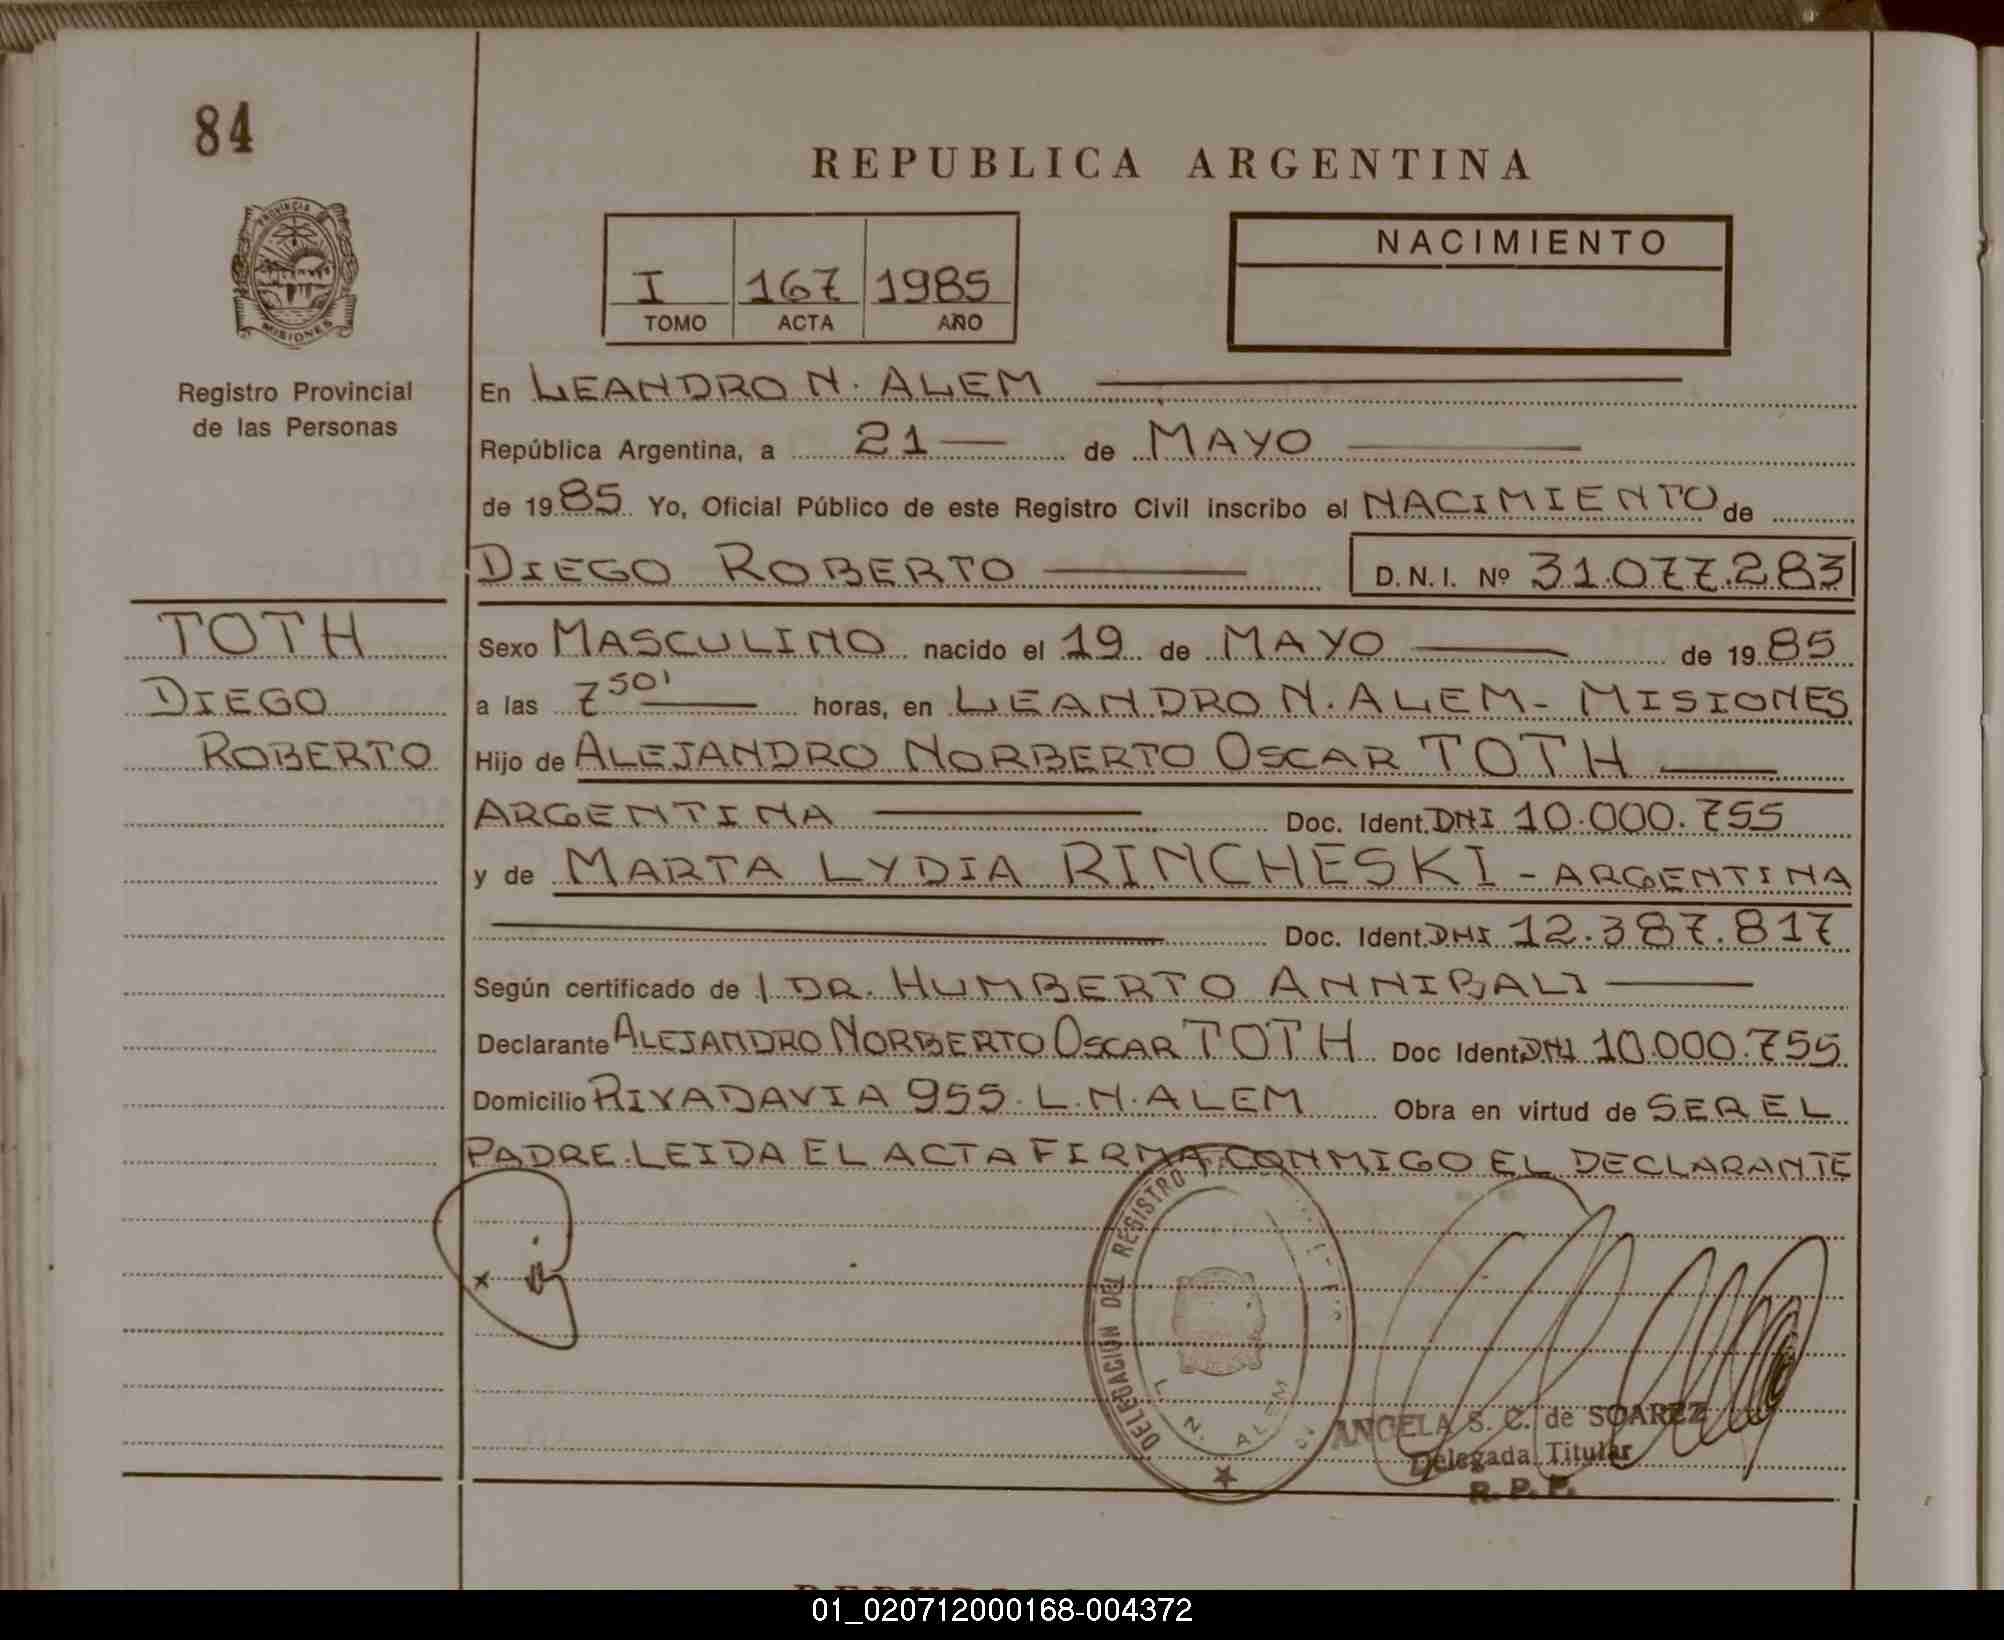 84
REPUBLICA ARGENTINA
PROVINCIA
MISIONES
Registro Provincial
de las Personas
I 167 1985
TOMO ACTA AÑO
NACIMIENTO
En LEANDRO N. ALEM
República Argentina, a 21 de MAYO
de 1985 Yo, Oficial Público de este Registro Civil inscribo el NACIMIENTO de
DIEGO ROBERTO D.N.I. Nº 31.077.283
TOTH
DIEGO
ROBERTO
Sexo MASCULINO nacido el 19 de MAYO de 1985
a las 7 50' horas, en LEANDRO N. ALEM - MISIONES
Hijo de ALEJANDRO NORBERTO OSCAR TOTH
ARGENTINA Doc. Ident. DNI 10.000.755
y de MARTA LYDIA RINCHESKI - ARGENTINA
Doc. Ident. DNI 12.387.817
Según certificado de / DR. HUMBERTO ANNIBALI
Declarante ALEJANDRO NORBERTO OSCAR TOTH Doc Ident DNI 10.000.755
Domicilio RIVADAVIA 955. L.N. ALEM Obra en virtud de SER EL
PADRE. LEIDA EL ACTA FIRMA CONMIGO EL DECLARANTE
x
DELEGACION DEL REGISTRO
L. N. ALEM
ANGELA S. C. de SOAREZ
Delegada Titular
R. P. P.
01_020712000168-004372